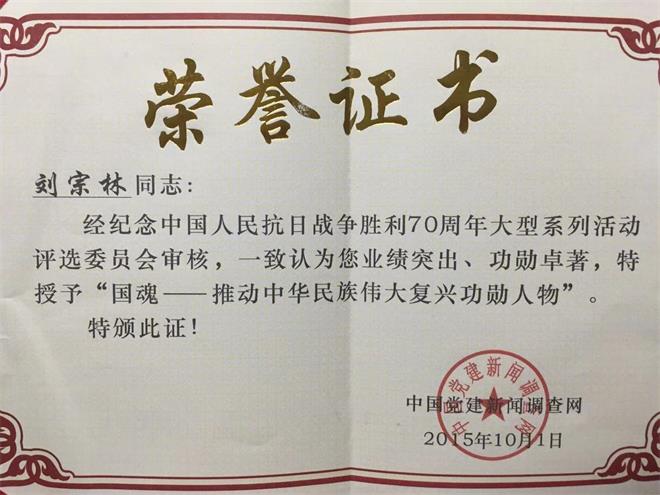 荣誉证书
刘宗林同志：
经纪念中国人民抗日战争胜利70周年大型系列活动
评选委员会审核，一致认为您业绩突出、功勋卓著，特
授予“国魂——推动中华民族伟大复兴功勋人物”。
特颁此证！
中国党建新闻调查网
中国党建新闻调查网
2015年10月1日